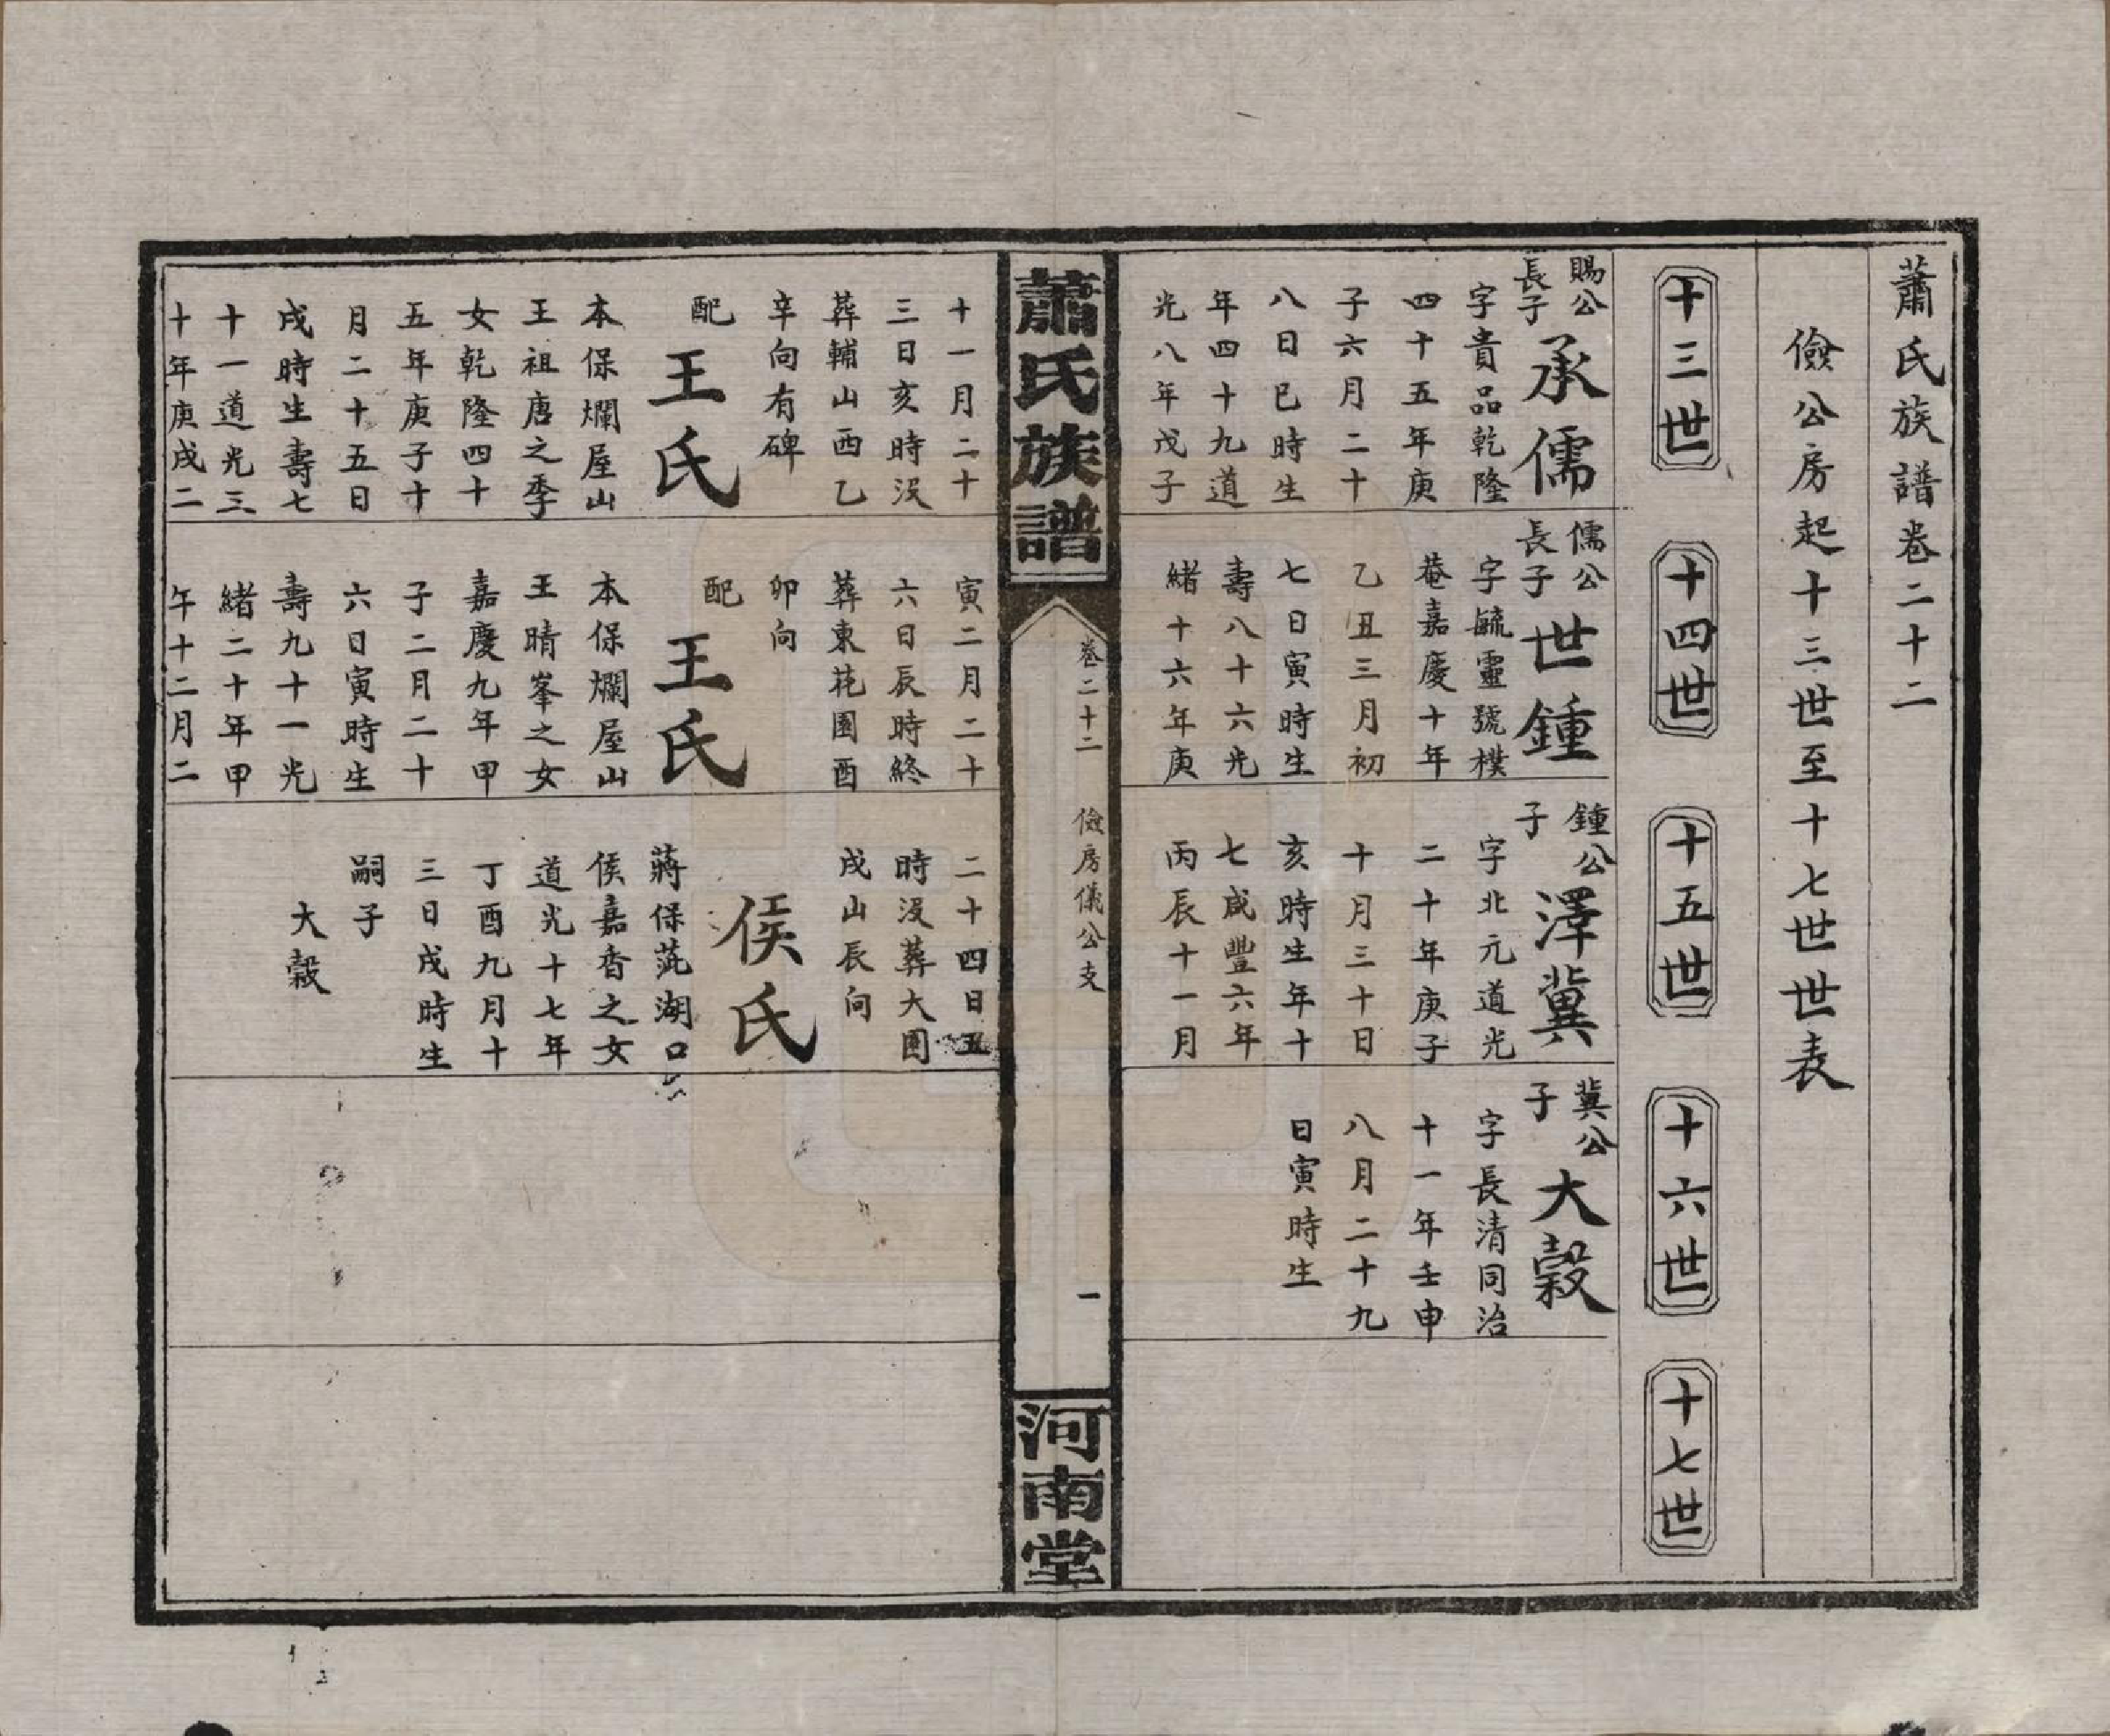 蕭氏族譜卷二十二
儉公房起十三世至十七世世表
十三世
十四世
十五世
十六世
十七世
賜公
長子
承儒
字貴品乾隆
四十五年庚
子六月二十
八日巳時生
年四十九道
光八年戊子
儒公
長子
世鍾
字毓靈號樸
菴嘉慶十年
乙丑三月初
七日寅時生
壽八十六光
緒十六年庚
鍾公
子
澤冀
字北元道光
二十年庚子
十月三十日
亥時生年十
七咸豐六年
丙辰十一月
冀公
子
大穀
字長清同治
十一年壬申
八月二十九
日寅時生
蕭氏族譜
卷二十二
儉房儀公支
一
河南堂
十一月二十
三日亥時沒
葬輔山酉乙
辛向有碑
配
王氏
本保爛屋山
王祖唐之季
女乾隆四十
五年庚子十
月二十五日
戌時生壽七
十一道光三
十年庚戌二
寅二月二十
六日辰時終
葬東花園酉
卯向
配
王氏
本保爛屋山
王晴峯之女
嘉慶九年甲
子二月二十
六日寅時生
壽九十一光
緒二十年甲
午十二月二
二十四日丑
時沒葬大園
戌山辰向
侯氏
蔣保茈湖口
侯嘉香之女
道光十七年
丁酉九月十
三日戌時生
嗣子
大穀